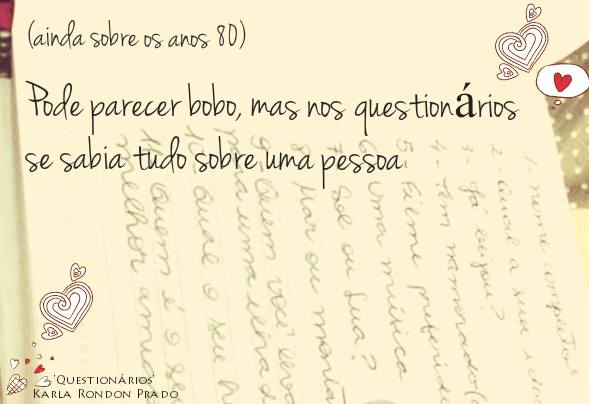 (ainda sobre os anos 80)
Pode parecer bobo, mas nos questionários
se sabia tudo sobre uma pessoa
1- nome completo
2- Qual a sua idade
3- Já beijou?
4- Tem namorado(
5- Filme preferido
6- Uma música
7- Sol ou Lua?
8- Mar ou montan
9- Quem você leva
para uma ilha d
10- Qual o seu h
11- Quem é o seu
melhor amigo
'Questionários'
Karla Rondon Prado